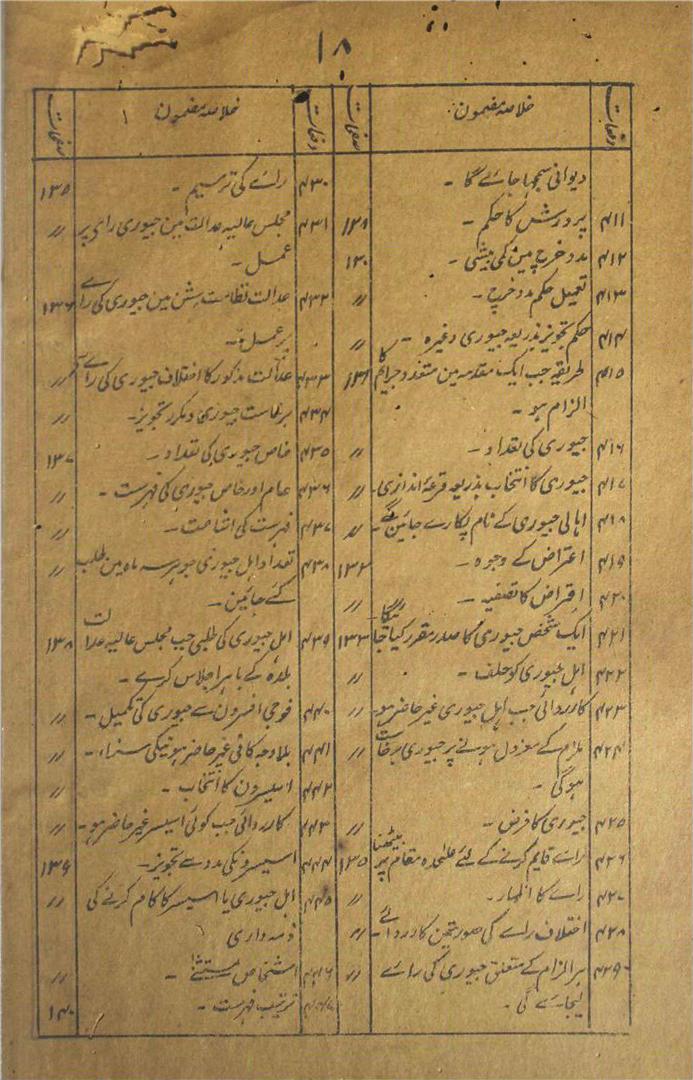 ۱۸
دفعات خلاصہ مضمون صفحات
دیوانی سمجھا جائے گا ۔
۴۱۱ پرورش کا حکم ۔ ۱۲۹
۴۱۲ مدد خرچ مین کمی بیشی ۔ ۱۳۰
۴۱۳ تعمیل حکم مدد خرچ ۔ ״
۴۱۴ حکم تجویز بذریعہ جیوری وغیرہ ۔ ״
۴۱۵ طریقہ جب ایک مقدمہ مین متعدد جرائم کا ۱۳۱
الزام ہو ۔
۴۱۶ جیوری کی تعداد ۔ ״
۴۱۷ جیوری کا انتخاب بذریعہ قرعہ اندازی ۔ ״
۴۱۸ اہالی جیوری کے نام پکارے جائین گے ۔ ״
۴۱۹ اعتراض کے وجوہ ۔ ۱۳۲
۴۲۰ اعتراض کا تصفیہ ۔ ״
۴۲۱ ایک شخص جیوری کا صدر مقرر کیا جائیگا ۔ ۱۳۳
۴۲۲ اہل جیوری کو حلف ۔ ״
۴۲۳ کارروائی جب اہل جیوری غیر حاضر ہو ۔ ״
۴۲۴ ملزم کے معزول ہونے پر جیوری برخاست
ہوگی ۔
۴۲۵ جیوری کا فرض ۔ ״
۴۲۶ راے قایم کرنے کے لئے علحدہ مقام پر بیٹھنا ۱۳۵
۴۲۷ راے کا اظہار ۔ ״
۴۲۸ اختلاف راے کی صورتمین کارروائے ۔ ״
۴۲۹ ہر الزام کے متعلق جیوری کی راے ״
لیجاے گی ۔
دفعات خلاصہ مضمون صفحات
۴۳۰ راے کی ترمیم ۔ ۱۳۵
۴۳۱ مجلس عالیہ عدالت مین جیوری کی راے پر ״
عمل ۔
۴۳۲ عدالت نظامت سشن مین جیوری کی راے ۱۳۶
پر عمل ۔
۴۳۳ عدالت مذکور کا اختلاف جیوری کی راے سے ״
۴۳۴ برخاست جیوری و مکرر تجویز ۔ ״
۴۳۵ خاص جیوری کی تعداد ۔ ۱۳۷
۴۳۶ عام اور خاص جیوری کی فہرست ۔ ״
۴۳۷ فہرست کی اشاعت ۔ ״
۴۳۸ تعداد اہل جیوری جو ہر سہ ماہ مین طلب ״
کئے جائین ۔
۴۳۹ اہل جیوری کی طلبی جب مجلس عالیہ عدالت ۱۳۸
بلدہ کے باہر اجلاس کرے ۔
۴۴۰ فوجی افسرون سے جیوری کی تکمیل ۔ ״
۴۴۱ بلا وجہ کافی غیر حاضر ہونیکی سزا ۔ ״
۴۴۲ اسیسرون کا انتخاب ۔ ״
۴۴۳ کارروائی جب کوئی اسیسر غیر حاضر ہو ۔ ״
۴۴۴ اسیسرونکی مدد سے تجویز ۔ ۱۳۹
۴۴۵ اہل جیوری یا اسیسر کا کام کرنے کی ״
ذمہ داری
۴۴۶ اشخاص مستثنیٰ ۔ ״
۴۴۷ ترتیب فہرست ۔ ۱۴۰